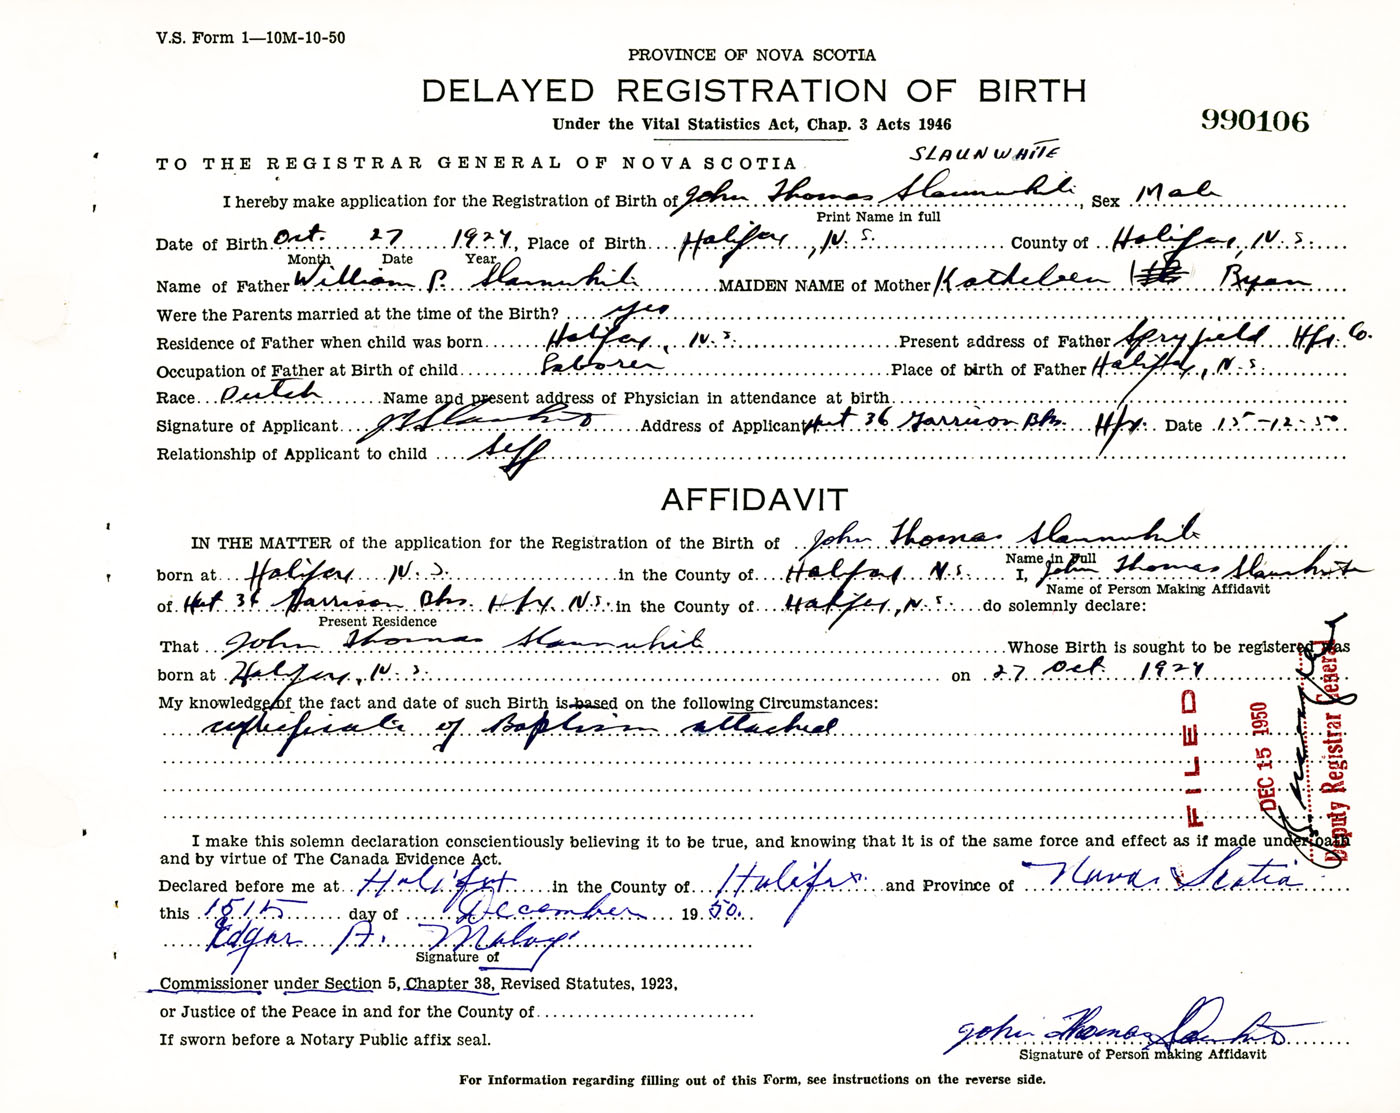 V.S. Form 1—10M-10-50
PROVINCE OF NOVA SCOTIA
DELAYED REGISTRATION OF BIRTH
Under the Vital Statistics Act, Chap. 3 Acts 1946
990106
SLAUNWHITE
TO THE REGISTRAR GENERAL OF NOVA SCOTIA
I hereby make application for the Registration of Birth of John Thomas Slaunwhite, Sex Male
Print Name in full
Date of Birth Oct. 27 1924, Place of Birth Halifax, N.S. County of Halifax, N.S.
Month Date Year
Name of Father William P. Slaunwhite MAIDEN NAME of Mother Kathleen Ryan
Were the Parents married at the time of the Birth? yes
Residence of Father when child was born Halifax, N.S. Present address of Father Spryfield Hfx Co.
Occupation of Father at Birth of child Laborer Place of birth of Father Halifax, N.S.
Race Dutch Name and present address of Physician in attendance at birth
Signature of Applicant JT Slaunwhite Address of Applicant Hut 36 Garrison Bks. Hfx. Date 15-12-50
Relationship of Applicant to child self
AFFIDAVIT
IN THE MATTER of the application for the Registration of the Birth of John Thomas Slaunwhite
Name in Full
born at Halifax N.S. in the County of Halifax N.S. I, John Thomas Slaunwhite
Name of Person Making Affidavit
of Hut 36 Garrison Bks. Hfx. N.S. in the County of Halifax, N.S. do solemnly declare:
Present Residence
That John Thomas Slaunwhite Whose Birth is sought to be registered was
born at Halifax, N.S. on 27 Oct. 1924
My knowledge of the fact and date of such Birth is based on the following Circumstances:
certificate of Baptism attached
FILED
DEC 15 1950
Deputy Registrar General
I make this solemn declaration conscientiously believing it to be true, and knowing that it is of the same force and effect as if made under oath
and by virtue of The Canada Evidence Act.
Declared before me at Halifax in the County of Halifax and Province of Nova Scotia
this 15th day of December 1950.
Edgar A.
Signature of
Commissioner under Section 5, Chapter 38, Revised Statutes, 1923,
or Justice of the Peace in and for the County of
If sworn before a Notary Public affix seal.
John Thomas Slaunwhite
Signature of Person making Affidavit
For Information regarding filling out of this Form, see instructions on the reverse side.